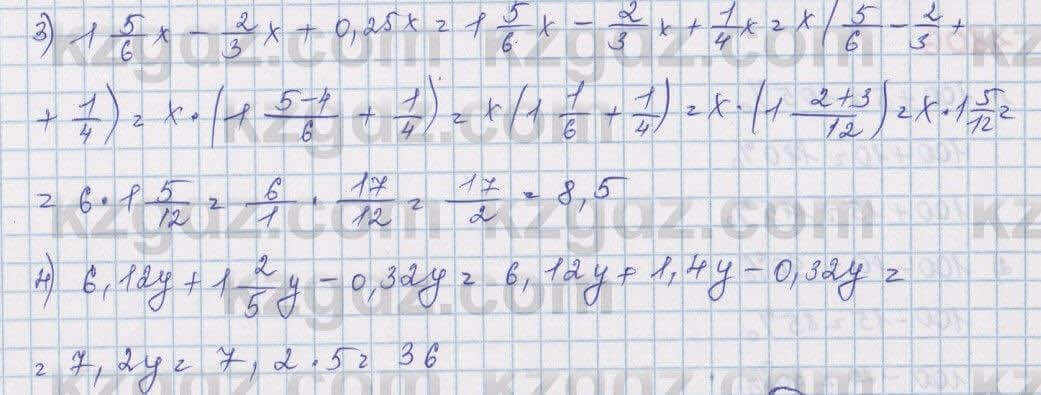 3) 1 5/6 x - 2/3 x + 0,25x = 1 5/6 x - 2/3 x + 1/4 x = x ( 5/6 - 2/3 +
+ 1/4 ) = x · ( 1 5-4/6 + 1/4 ) = x ( 1 1/6 + 1/4 ) = x · ( 1 2+3/12 ) = x · 1 5/12 =
= 6 · 1 5/12 = 6/1 · 17/12 = 17/2 = 8,5
4) 6,12y + 1 2/5 y - 0,32y = 6,12y + 1,4y - 0,32y =
= 7,2y = 7,2 · 5 = 36
kzgdz.com